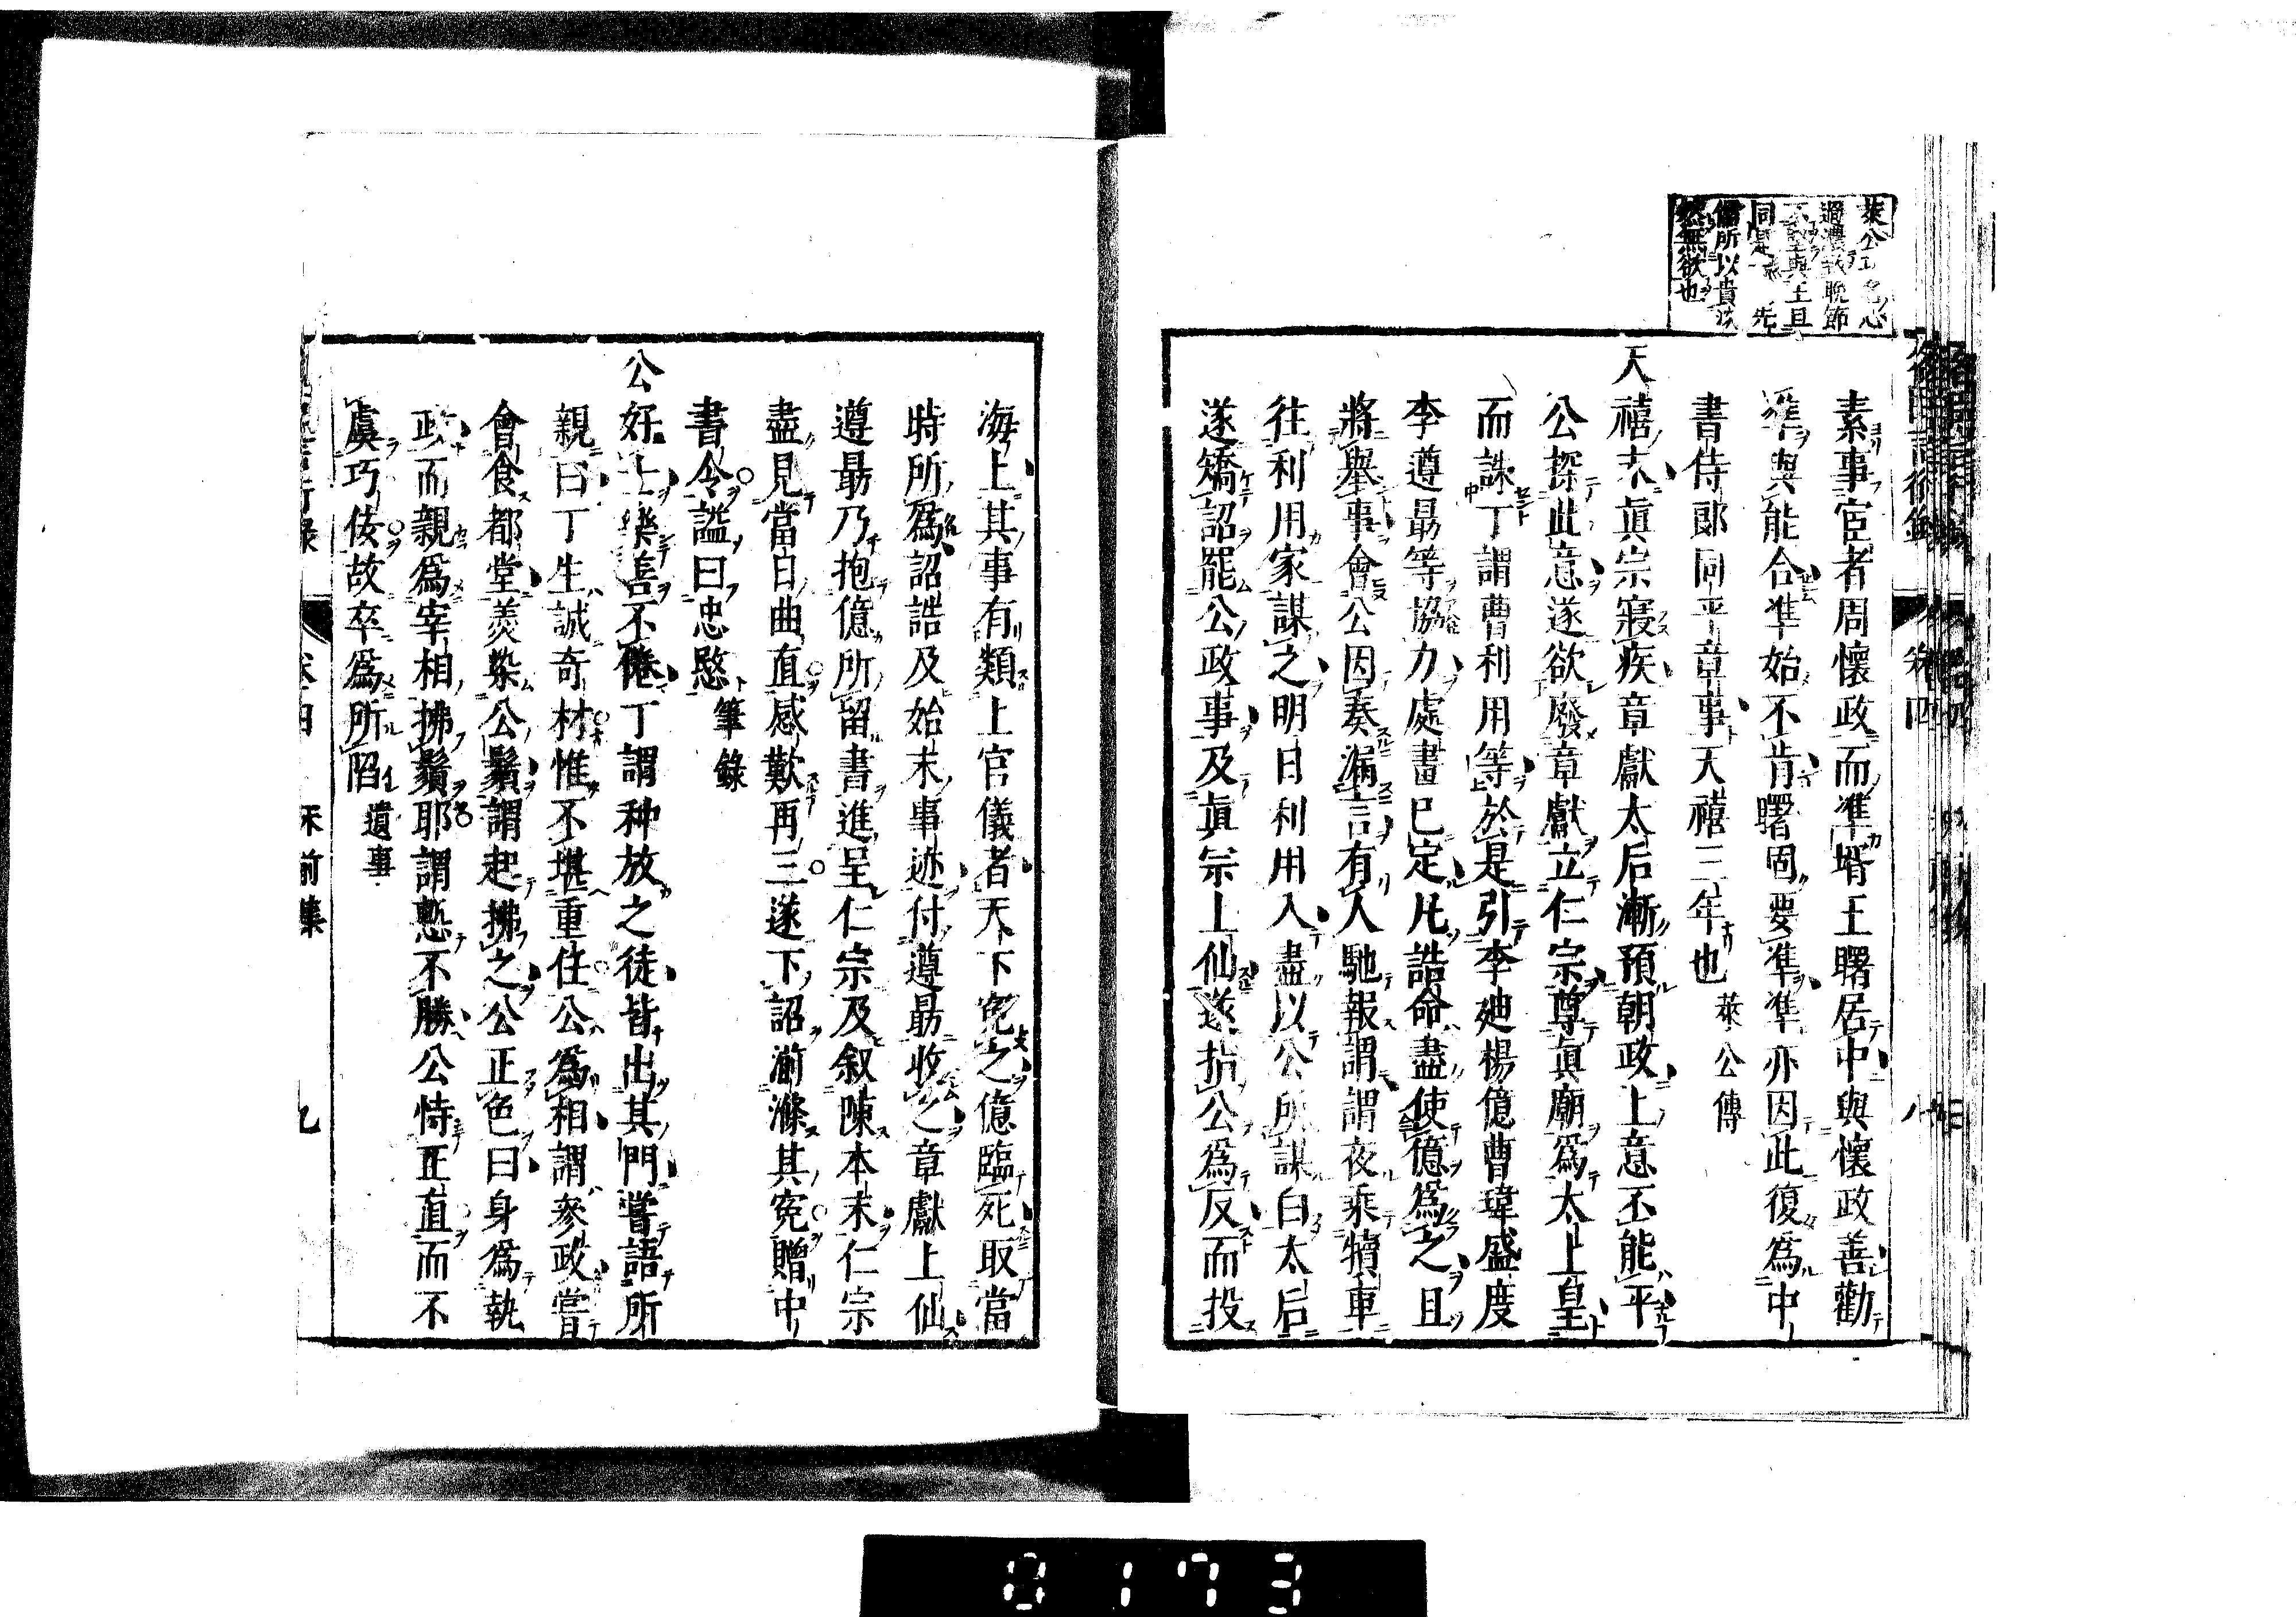 萊公功名心
過濃故晩節
不與王旦
同是先
儒所以貴淡
然無欲也
素事宦者周懷政而準壻王曙居中與懷政善勸
準與能合準始不肯曙固要準準亦因此復爲中
書侍郞同平章事天禧三年也 萊公傳
天禧末眞宗寢疾章獻太后漸預朝政上意不能平
公探此意遂欲廢章獻立仁宗尊眞廟爲太上皇
而誅丁謂曹利用等於是引李廸楊億曹瑋盛度
李遵勗等協力處畫已定凡誥命盡使億爲之且
將舉事會公因奏漏言有人馳報謂謂夜乘犢車
往利用家謀之明日利用入盡以公所謀白太后
遂矯詔罷公政事及眞宗上仙遂指公爲反而投
海上其事有類上官儀者天下寃之億臨死取當
時所爲詔誥及始末事迹付遵勗收之章獻上仙
遵勗乃抱億所留書進呈仁宗及叙陳本末仁宗
盡見當日曲直感歎再三遂下詔湔滌其寃贈中
書令謚曰忠愍 筆錄
公好士樂善不倦丁謂种放之徒皆出其門嘗語所
親曰丁生誠奇材惟不堪重任公爲相謂參政嘗
會食都堂羹染公鬚謂起拂之公正色曰身爲執
政而親爲宰相拂鬚耶謂慙不勝公恃正直而不
虞巧佞故卒爲所陷 遺事
0173